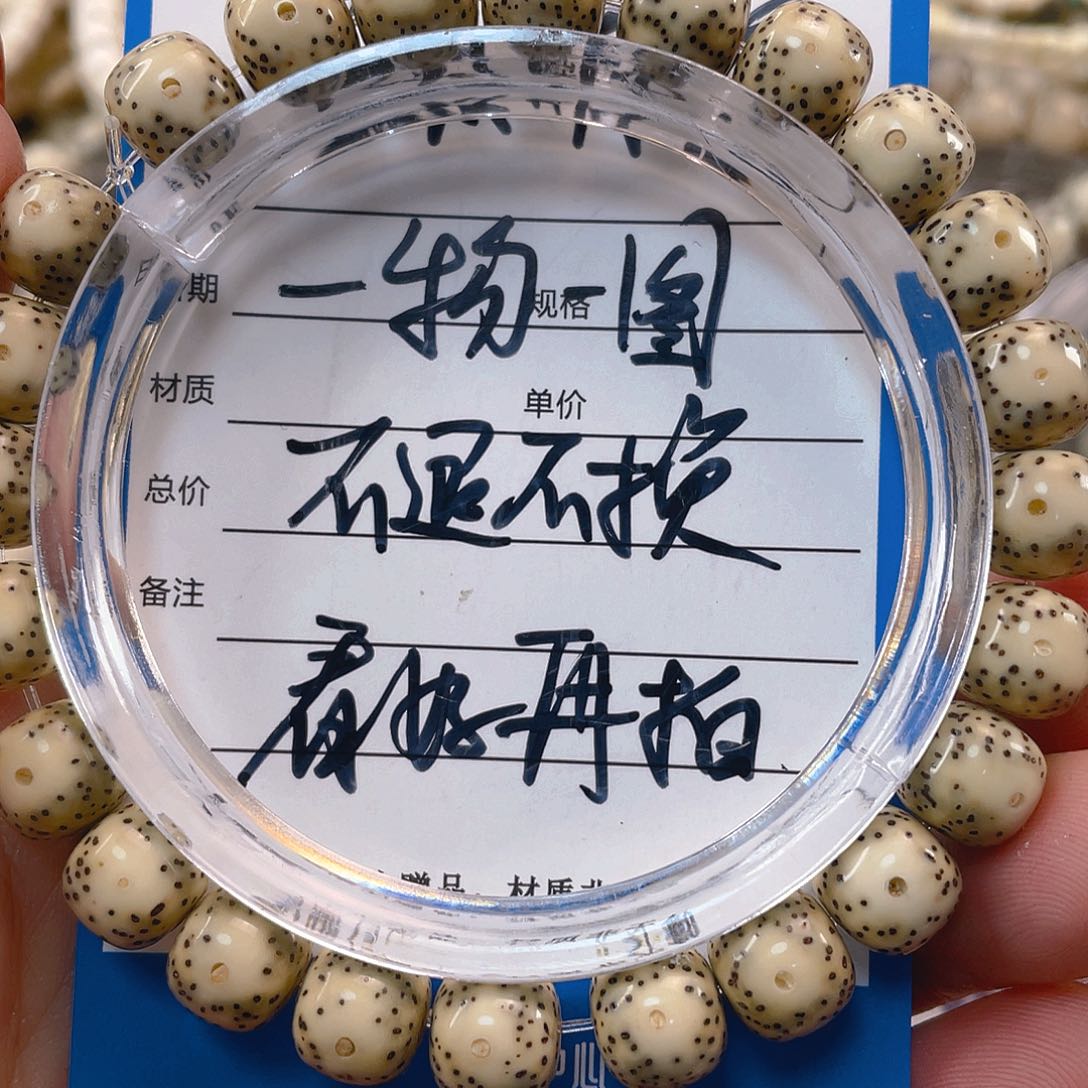 一物一图
期
规格
材质
单价
不退不换
总价
备注
看好再拍
赠品 材质非
心